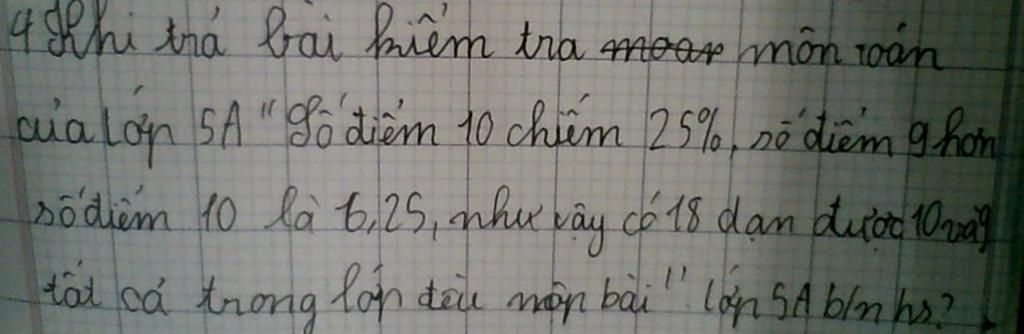 4 Khi trả bài kiểm tra môn toán
của lớp 5A "Số điểm 10 chiếm 25%, số điểm 9 hơn
số điểm 10 là 6,25, như vậy có 18 bạn được 10 và 9
tất cả trong lớp đều nộp bài" lớp 5A b/n hs?